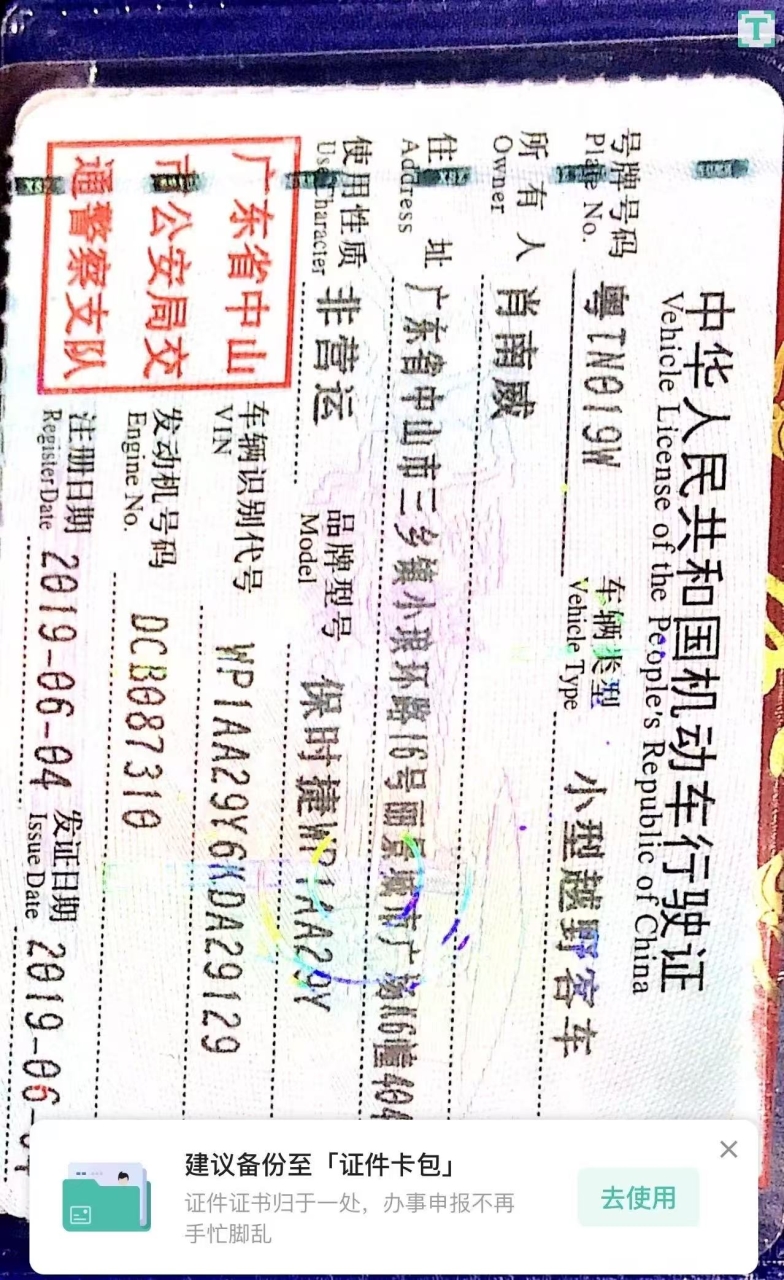 中华人民共和国机动车行驶证
Vehicle License of the People's Republic of China
号牌号码 粤TN019W 车辆类型 小型越野客车
Plate No. Vehicle Type
所有人 肖南威
Owner
住址 广东省中山市三乡镇小琅环路16号丽景城市广场A6幢404
Address
使用性质 非营运 品牌型号 保时捷WP1AA29Y
Use Character Model
广东省中山
市公安局交
通警察支队
车辆识别代号 WP1AA29Y6KDA29129
VIN
发动机号码 DCB087310
Engine No.
注册日期 2019-06-04 发证日期 2019-06-
Register Date Issue Date
建议备份至「证件卡包」
证件证书归于一处，办事申报不再
手忙脚乱
去使用